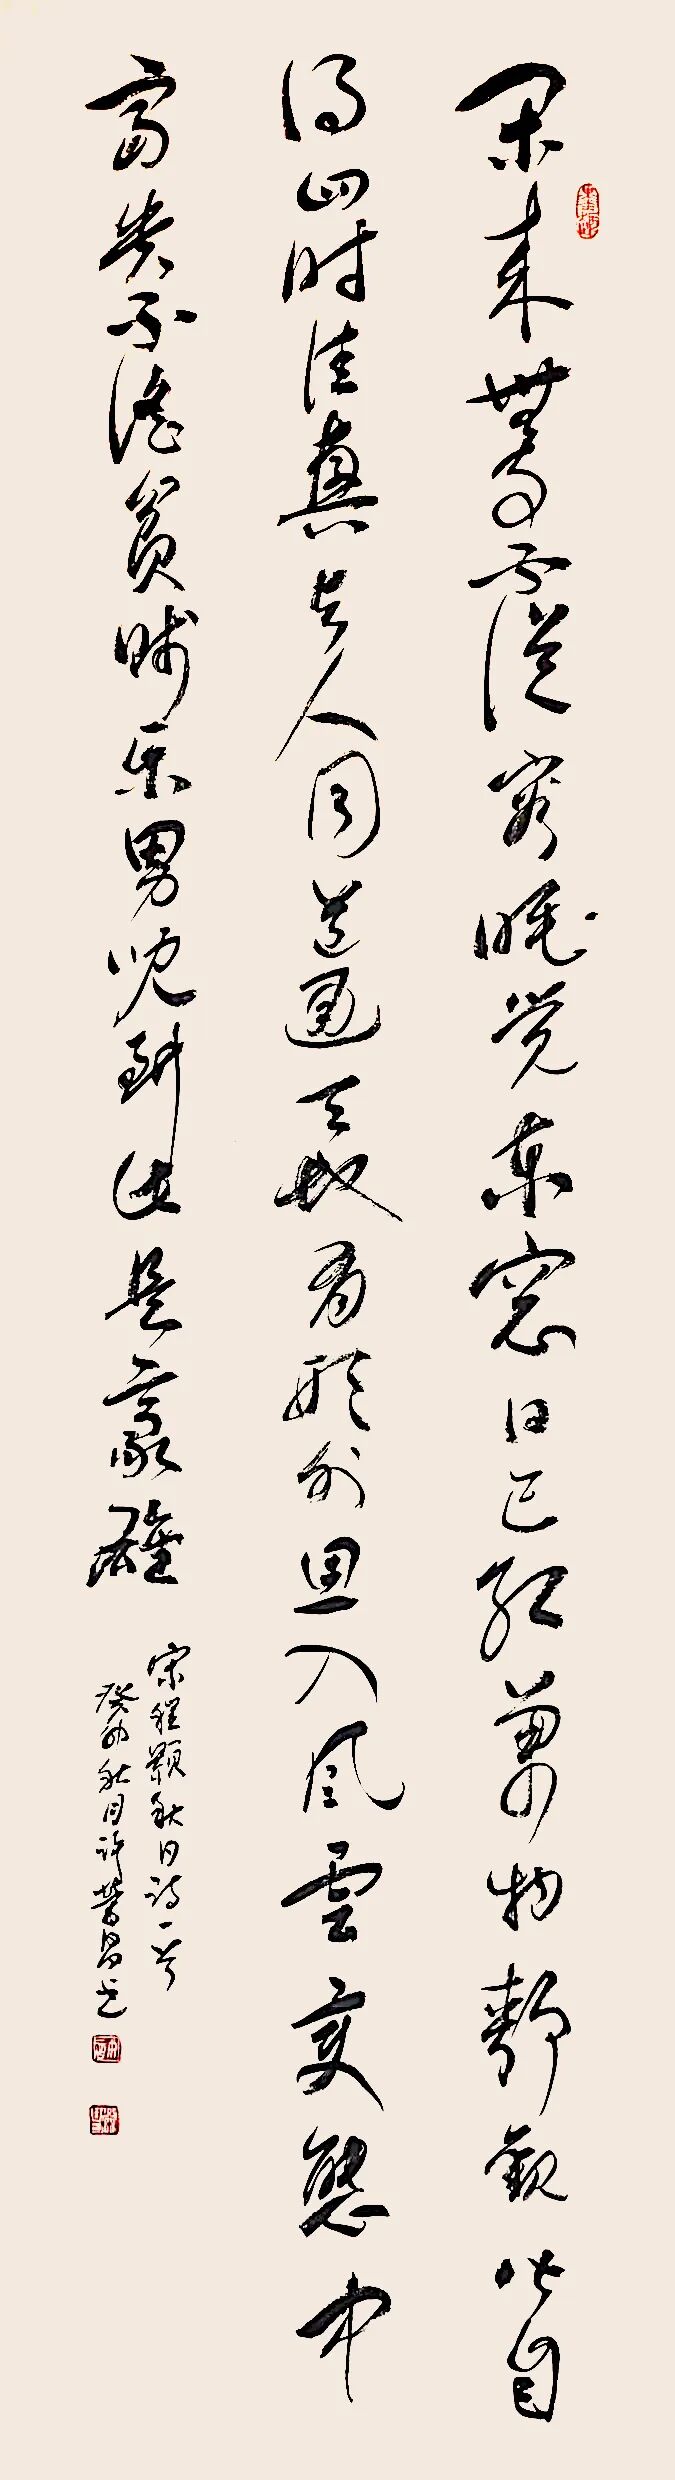 闲来無事不從容睡觉東窓日已红萬物靜觀皆自
得四时佳興与人同道通天地有形外思入风雲变態中
富贵不淫貧賤乐男児到此是豪雄
宋程颢秋日诗一首
癸卯秋月许昌书